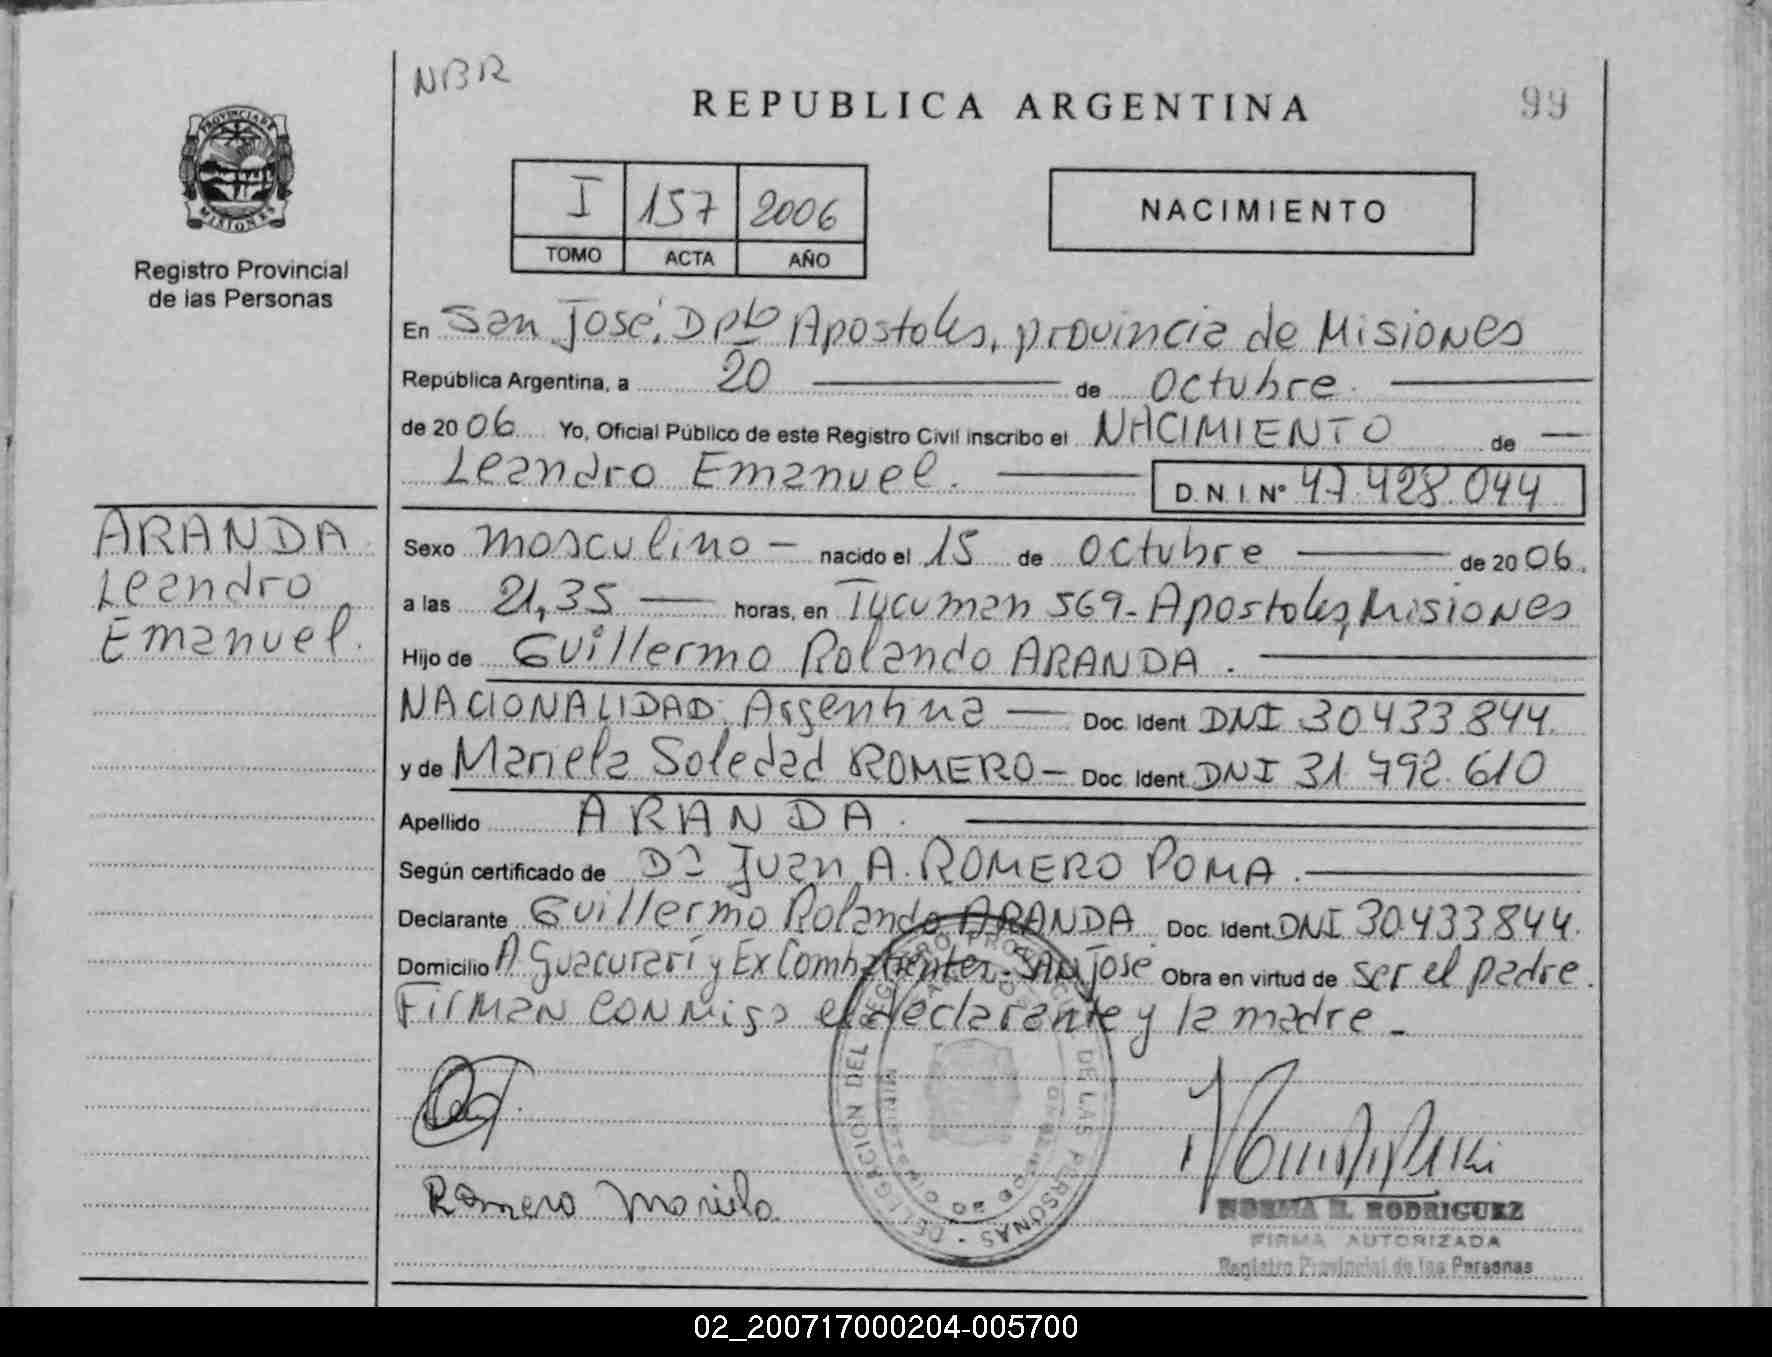 NBR
REPUBLICA ARGENTINA
99
PROVINCIA DE
MISIONES
Registro Provincial
de las Personas
I 157 2006
TOMO ACTA AÑO
NACIMIENTO
En San José, Dpto Apostoles, provincia de Misiones
República Argentina, a 20 de Octubre.
de 2006 Yo, Oficial Público de este Registro Civil inscribo el NACIMIENTO de
Leandro Emanuel. D.N.I. Nº 47.428.044
ARANDA
Leandro
Emanuel.
Sexo masculino - nacido el 15 de Octubre de 2006.
a las 21,35 horas, en Tucuman 569- Apostoles, Misiones
Hijo de Guillermo Rolando ARANDA.
NACIONALIDAD: Argentina Doc. Ident. DNI 30.433.844.
y de Mariela Soledad ROMERO - Doc. Ident. DNI 31.792.610
Apellido ARANDA.
Según certificado de Dr Juan A. ROMERO POMA.
Declarante Guillermo Rolando ARANDA Doc. Ident. DNI 30.433.844.
Domicilio A Guacurarí y Ex Combatientes - SAN José Obra en virtud de ser el padre.
Firman conmigo el declarante y la madre -
DELEGACION DEL REGISTRO PROVINCIAL DE LAS PERSONAS
Romero Mariela
NORMA H. RODRIGUEZ
FIRMA AUTORIZADA
Registro Provincial de las Personas
02_200717000204-005700